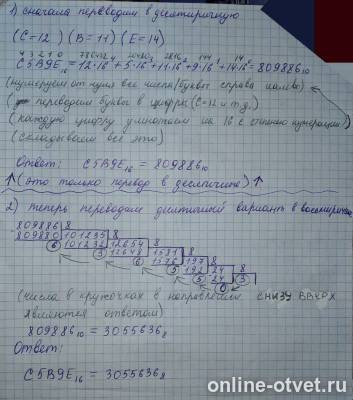 1) сначала переводим в десятиричную
(C=12) (B=11) (E=14)
4 3 2 1 0
C5B9E₁₆ = 12·16⁴ + 5·16³ + 11·16² + 9·16¹ + 14·16⁰ = 809886₁₀
(нумеруем от нуля все числа/буквы справа налево)
(переводим буквы в цифры (C=12 и т.д.)
(каждую цифру умножаем на 16 в степени нумерации)
(складываем всё это)
Ответ: C5B9E₁₆ = 809886₁₀
↑ (это только перевод в десятичные) ↑
2) теперь переводим десятичный вариант в
809886 | 8
809880 | 101235 | 8
6 101232 | 12654 | 8
3 12648 | 1581 | 8
6 1576 | 197 | 8
5 192 | 24 | 8
5 24 | 3
0
(числа в кружочках в направлении снизу вверх
являются ответом)
809886₁₀ = 3055636₈
Ответ:
C5B9E₁₆ = 3055636₈
online-otvet.ru